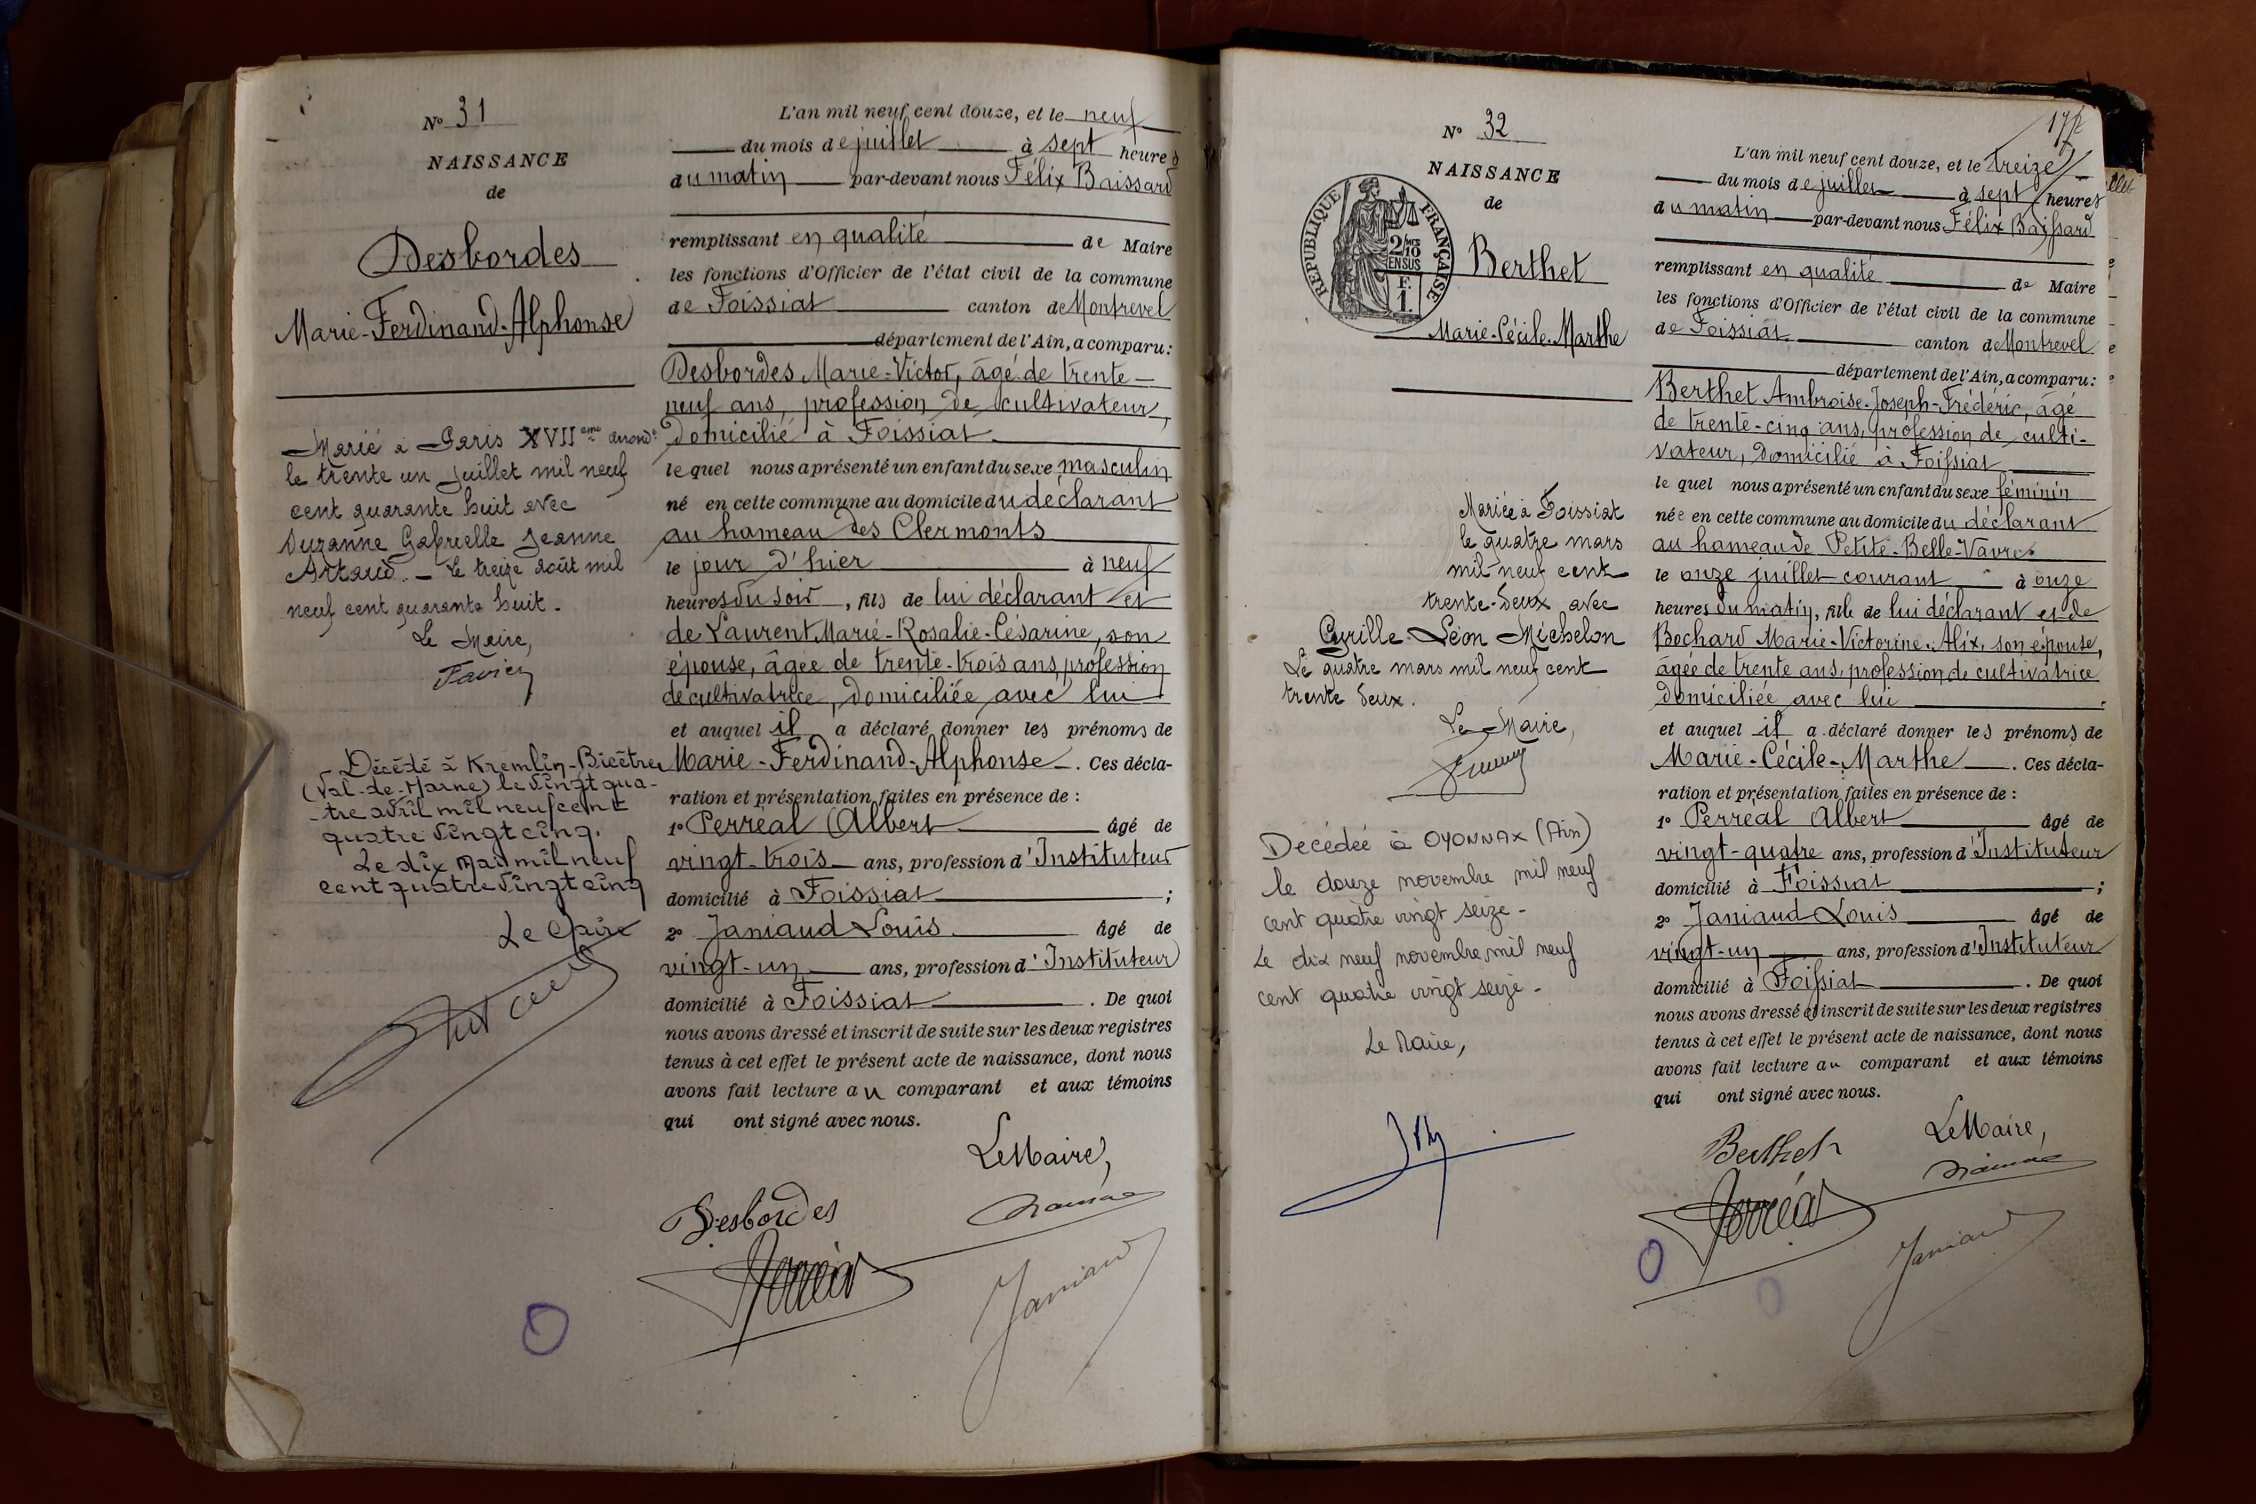 N° 31
NAISSANCE
de
Desbordes
Marie-Ferdinand-Alphonse
Marié à Paris XVII eme arrond t
le trente un juillet mil neuf
cent quarante huit avec
Suzanne Gabrielle Jeanne
Artaud. - Le treize août mil
neuf cent quarante huit.
Le Maire,
Décédé à Kremlin-Bicêtre
(Val-de-Marne) le vingt qua-
-tre avril mil neuf cent
quatre vingt cinq.
Le dix Mai mil neuf
cent quatre vingt cinq
Le Maire
L'an mil neuf cent douze, et le neuf
du mois de juillet à sept heures
du matin par-devant nous Félix Baissard
remplissant en qualité de Maire
les fonctions d'Officier de l'état civil de la commune
de Foissiat canton de Montrevel
département de l'Ain, a comparu:
Desbordes Marie-Victor, âgé de trente-
neuf ans, profession de cultivateur,
domicilié à Foissiat
le quel nous a présenté un enfant du sexe masculin
né en cette commune au domicile du déclarant
au hameau des Clermonts
le jour d'hier à neuf
heures du soir, fils de lui déclarant et
de Laurent Marie-Rosalie-Césarine, son
épouse, âgée de trente-trois ans, profession
de cultivatrice, domiciliée avec lui
et auquel il a déclaré donner les prénoms de
Marie-Ferdinand-Alphonse. Ces décla-
ration et présentation faites en présence de :
1° Perréal Albert âgé de
vingt-trois ans, profession d'Instituteur
domicilié à Foissiat ;
2° Janiaud Louis âgé de
vingt-un ans, profession d'Instituteur
domicilié à Foissiat. De quoi
nous avons dressé et inscrit de suite sur les deux registres
tenus à cet effet le présent acte de naissance, dont nous
avons fait lecture au comparant et aux témoins
qui ont signé avec nous.
Le Maire,
Desbordes
Perréal
Janiaud
N° 32
NAISSANCE
de
REPUBLIQUE FRANÇAISE
2/10 EN SUS
F. 1.
Berthet
Marie-Cécile-Marthe
Mariée à Foissiat
le quatre mars
mil-neuf cent
trente-deux avec
Cyrille Léon Michelon
Le quatre mars mil neuf cent
trente deux.
Le Maire,
Décédée à OYONNAX (Ain)
le douze novembre mil neuf
cent quatre vingt seize -
Le dix neuf novembre mil neuf
cent quatre vingt seize -
Le Maire,
L'an mil neuf cent douze, et le treize
du mois de juillet à sept heures
du matin par-devant nous Félix Baissard
remplissant en qualité de Maire
les fonctions d'Officier de l'état civil de la commune
de Foissiat canton de Montrevel
département de l'Ain, a comparu:
Berthet Ambroise-Joseph-Frédéric, âgé
de trente-cinq ans, profession de culti-
vateur, domicilié à Foissiat
le quel nous a présenté un enfant du sexe féminin
née en cette commune au domicile du déclarant
au hameau de Petite-Belle-Vavre
le onze juillet courant à onze
heures du matin, fille de lui déclarant et de
Bochard Marie-Victorine-Alix, son épouse,
âgée de trente ans, profession de cultivatrice
domiciliée avec lui
et auquel il a déclaré donner les prénoms de
Marie-Cécile-Marthe. Ces décla-
ration et présentation faites en présence de :
1° Perréal Albert âgé de
vingt-quatre ans, profession d'Instituteur
domicilié à Foissiat ;
2° Janiaud Louis âgé de
vingt-un ans, profession d'Instituteur
domicilié à Foissiat. De quoi
nous avons dressé et inscrit de suite sur les deux registres
tenus à cet effet le présent acte de naissance, dont nous
avons fait lecture au comparant et aux témoins
qui ont signé avec nous.
Le Maire,
Berthet
Perréal
Janiaud